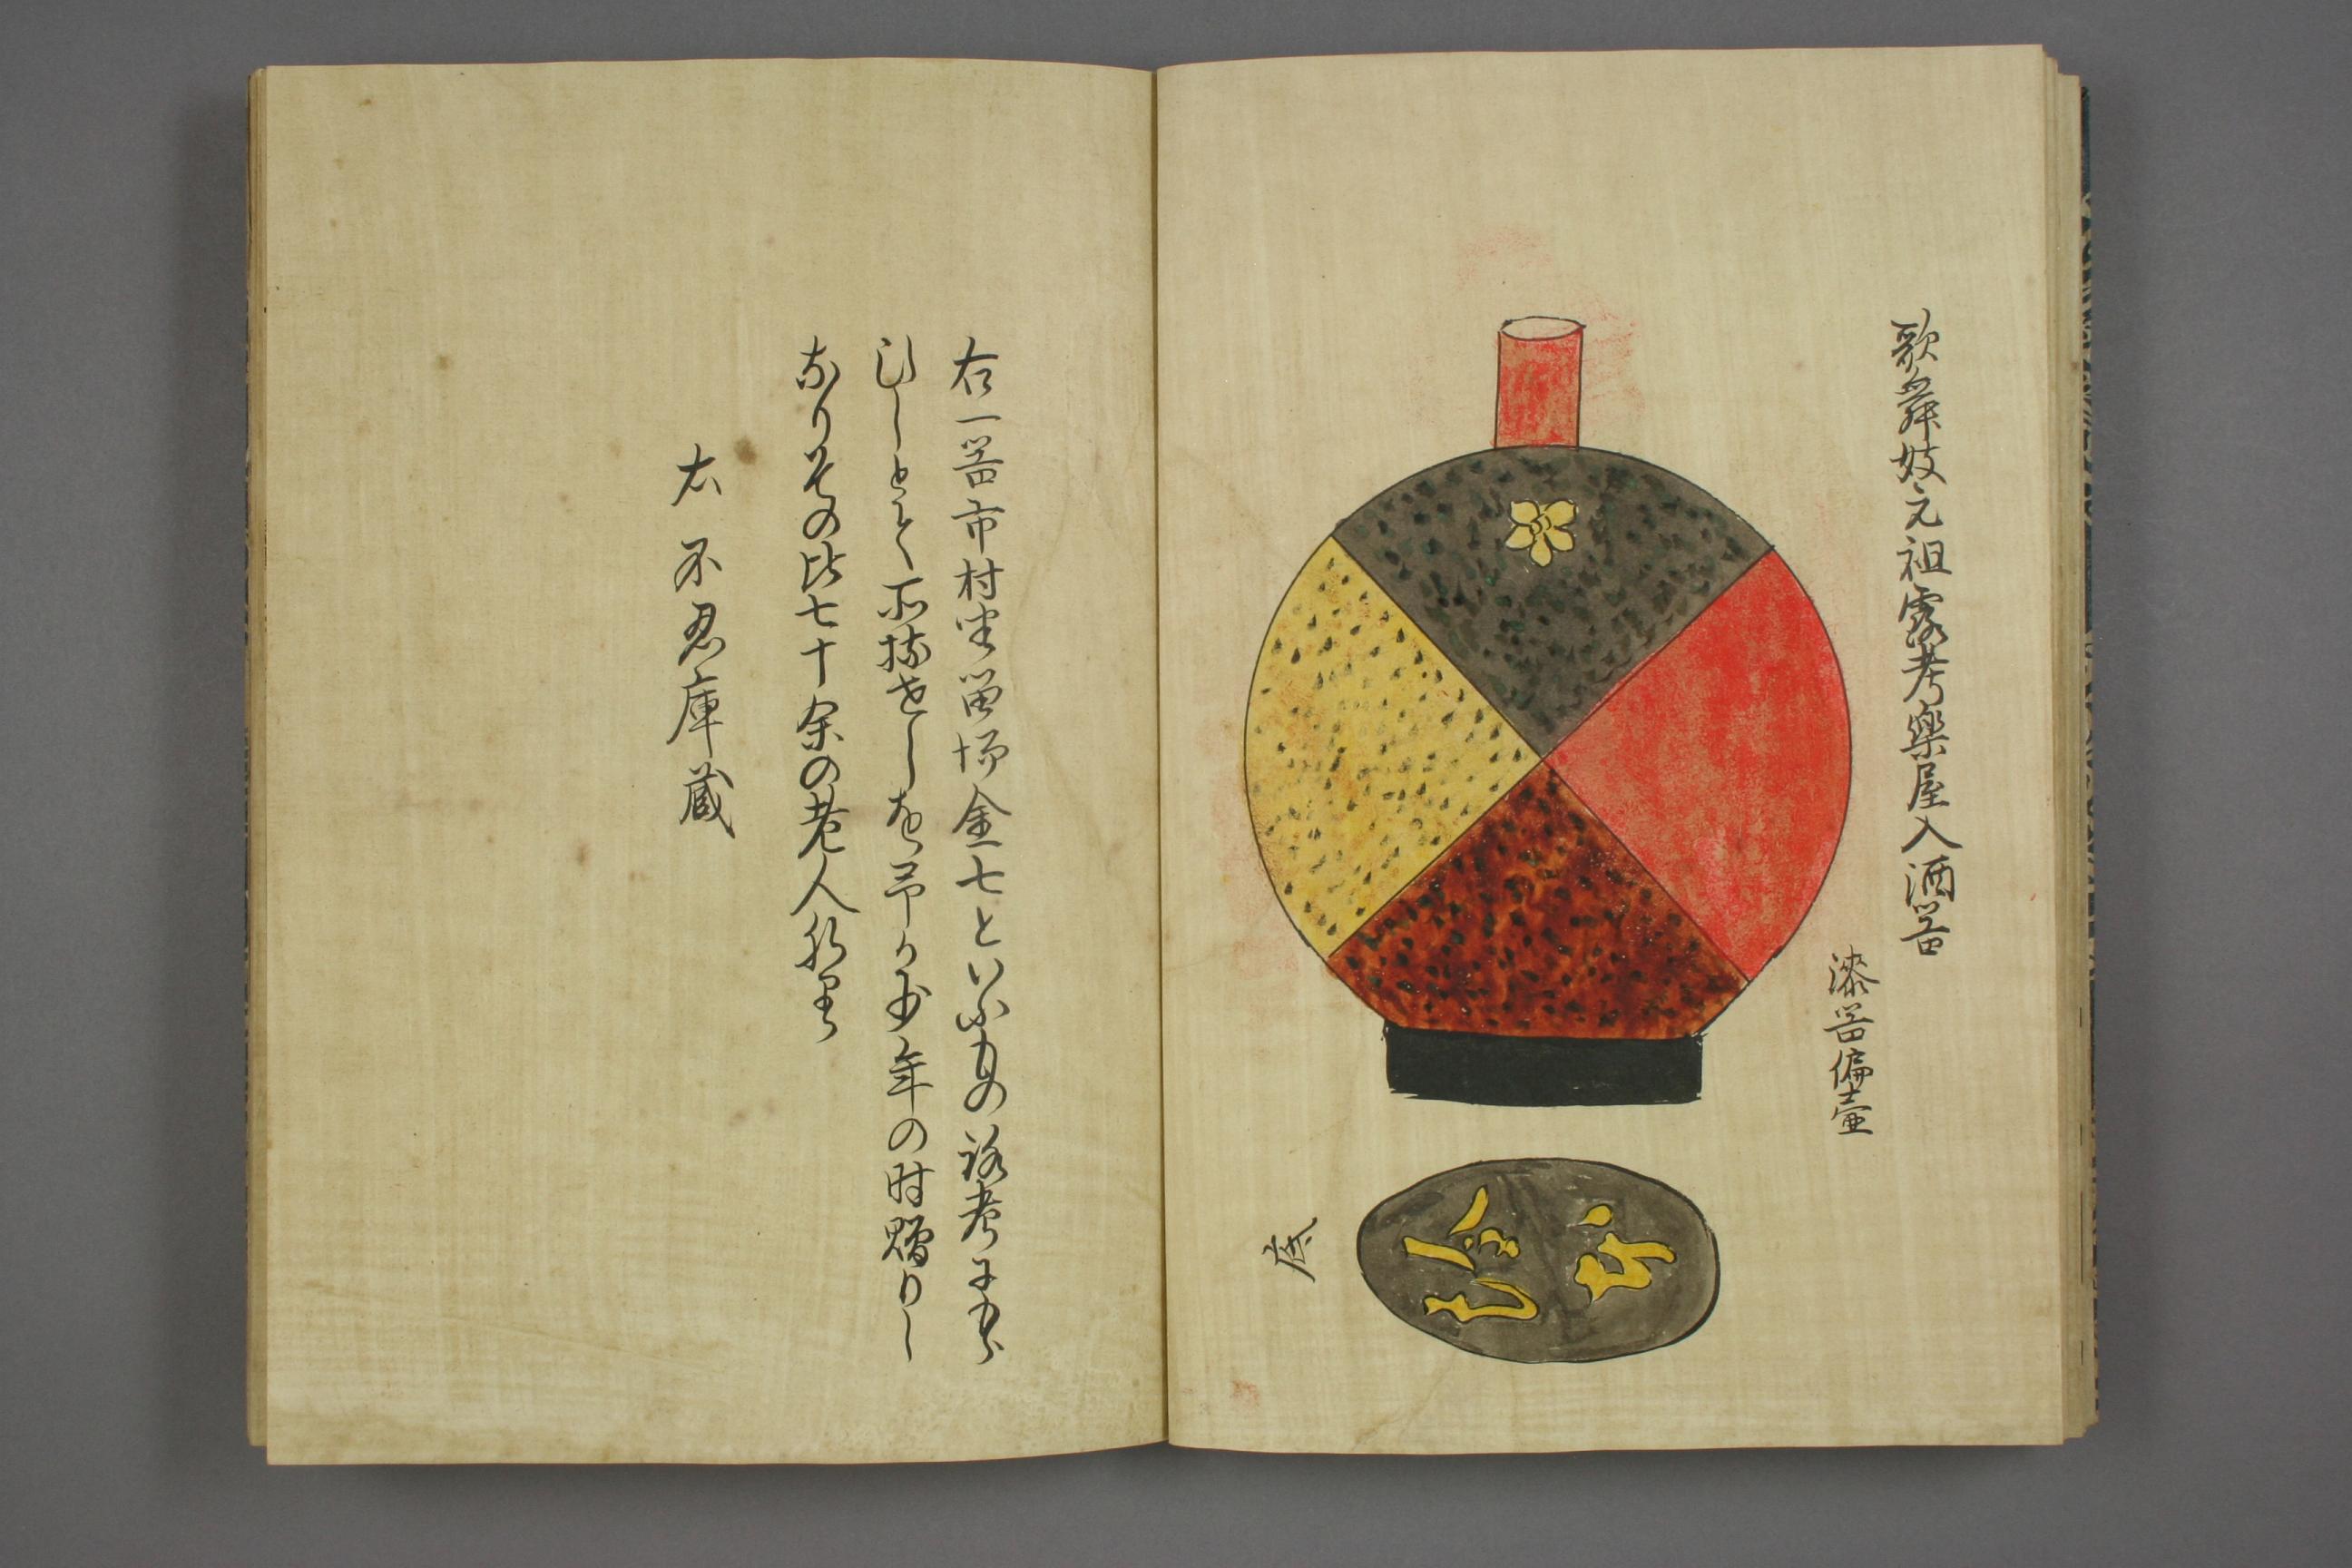 歌舞妓元祖露考樂屋入酒器
漆器偏壷
底
右一器市村坐留場金七といふもの路考にもら
ひしとて所持せしを予か少年の時贈りし
なりその比七十余の老人なり
右不忍庫蔵